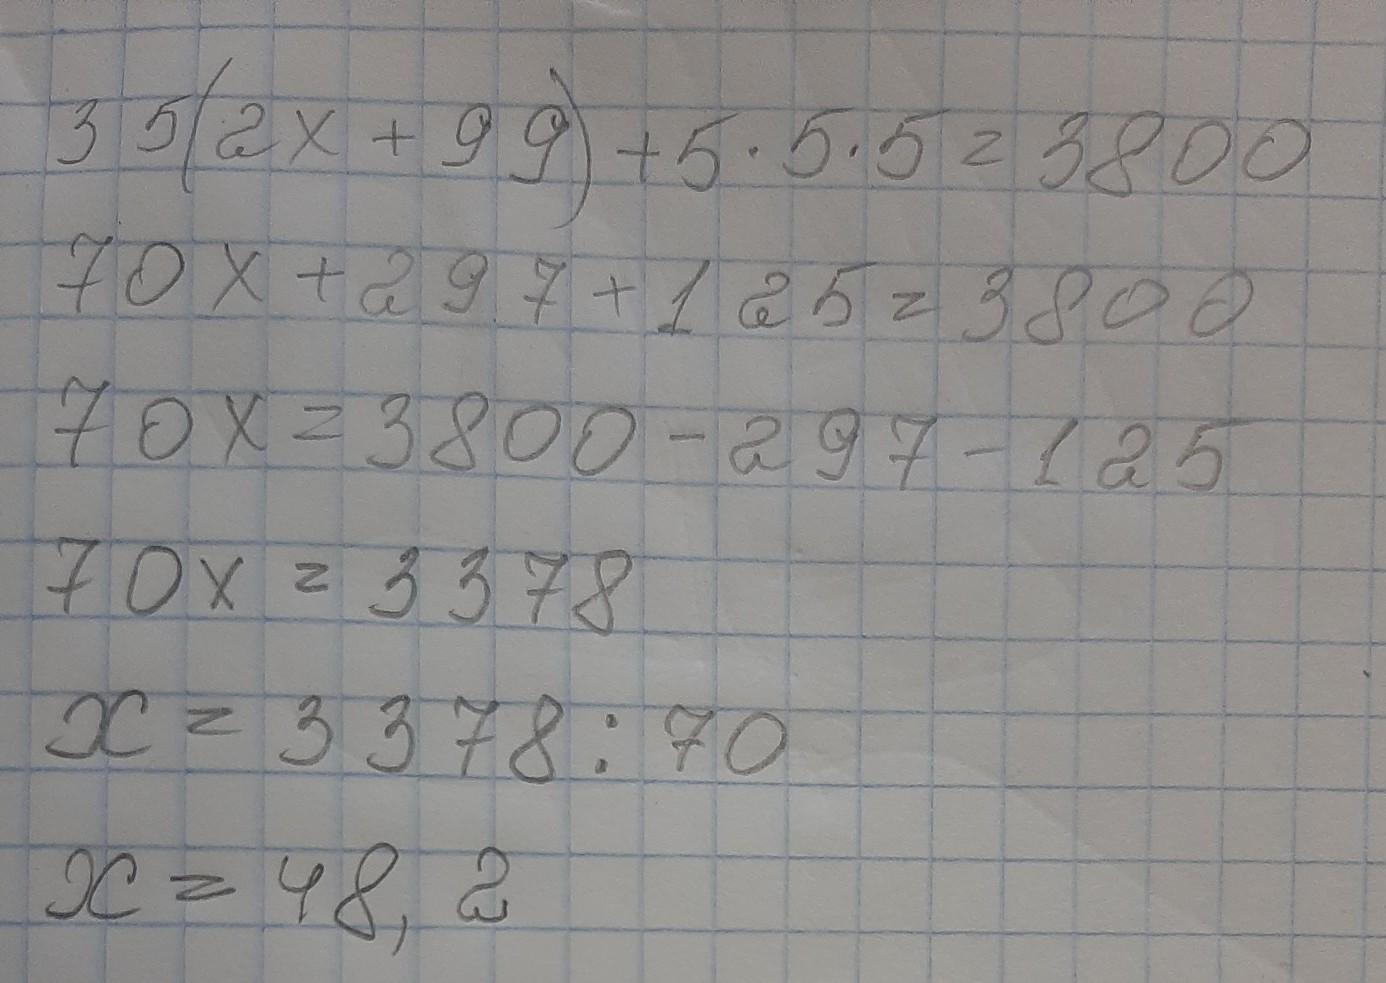 35(2x+99)+5·5·5=3800
70x+297+125=3800
70x=3800-297-125
70x=3378
x=3378:70
x=48,2